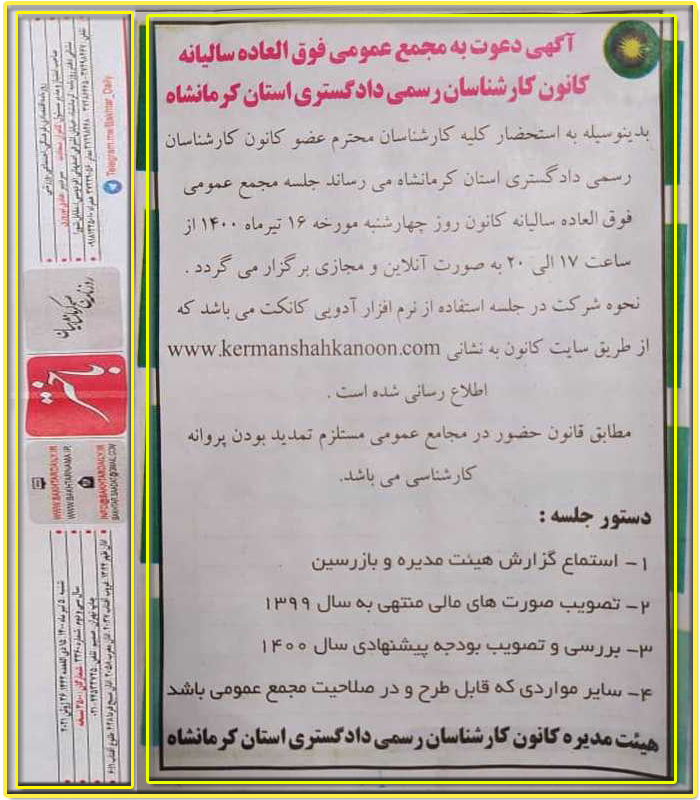 آگهی دعوت به مجمع عمومی فوق العاده سالیانه
کانون کارشناسان رسمی دادگستری استان کرمانشاه
بدینوسیله به استحضار کلیه کارشناسان محترم عضو کانون کارشناسان
رسمی دادگستری استان کرمانشاه می رساند جلسه مجمع عمومی
فوق العاده سالیانه کانون روز چهارشنبه مورخه ۱۶ تیرماه ۱۴۰۰ از
ساعت ۱۷ الی ۲۰ به صورت آنلاین و مجازی برگزار می گردد .
نحوه شرکت در جلسه استفاده از نرم افزار آدوبی کانکت می باشد که
از طریق سایت کانون به نشانی www.kermanshahkanoon.com
اطلاع رسانی شده است .
مطابق قانون حضور در مجامع عمومی مستلزم تمدید بودن پروانه
کارشناسی می باشد.
دستور جلسه :
۱- استماع گزارش هیئت مدیره و بازرسین
۲- تصویب صورت های مالی منتهی به سال ۱۳۹۹
۳- بررسی و تصویب بودجه پیشنهادی سال ۱۴۰۰
۴- سایر مواردی که قابل طرح و در صلاحیت مجمع عمومی باشد
هیئت مدیره کانون کارشناسان رسمی دادگستری استان کرمانشاه
Telegram.me/Bakhtar_Daily
باختر
WWW.BAKHTARDAILY.IR
WWW.BAKHTARNAMA.IR
INFO@BAKHTARDAILY.IR
شنبه ۵ تیر ماه ۱۴۰۰